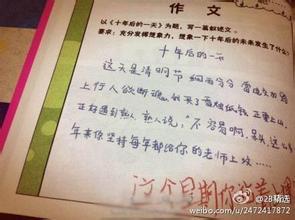 作文
以《十年后的一天》为题,写一篇叙述文。
要求:充分发挥想象力,想象一下十年后的未来发生了什么
十年后的一天
这天是清明节 细雨纷纷
上行人欲断魂,我买了 纸钱正要上山,
正好遇到熟人,熟人说,"不容易啊,
年来你坚持每年都给你的老师上坟……
这个星期你
@28精选
weibo.com/u/2472417872